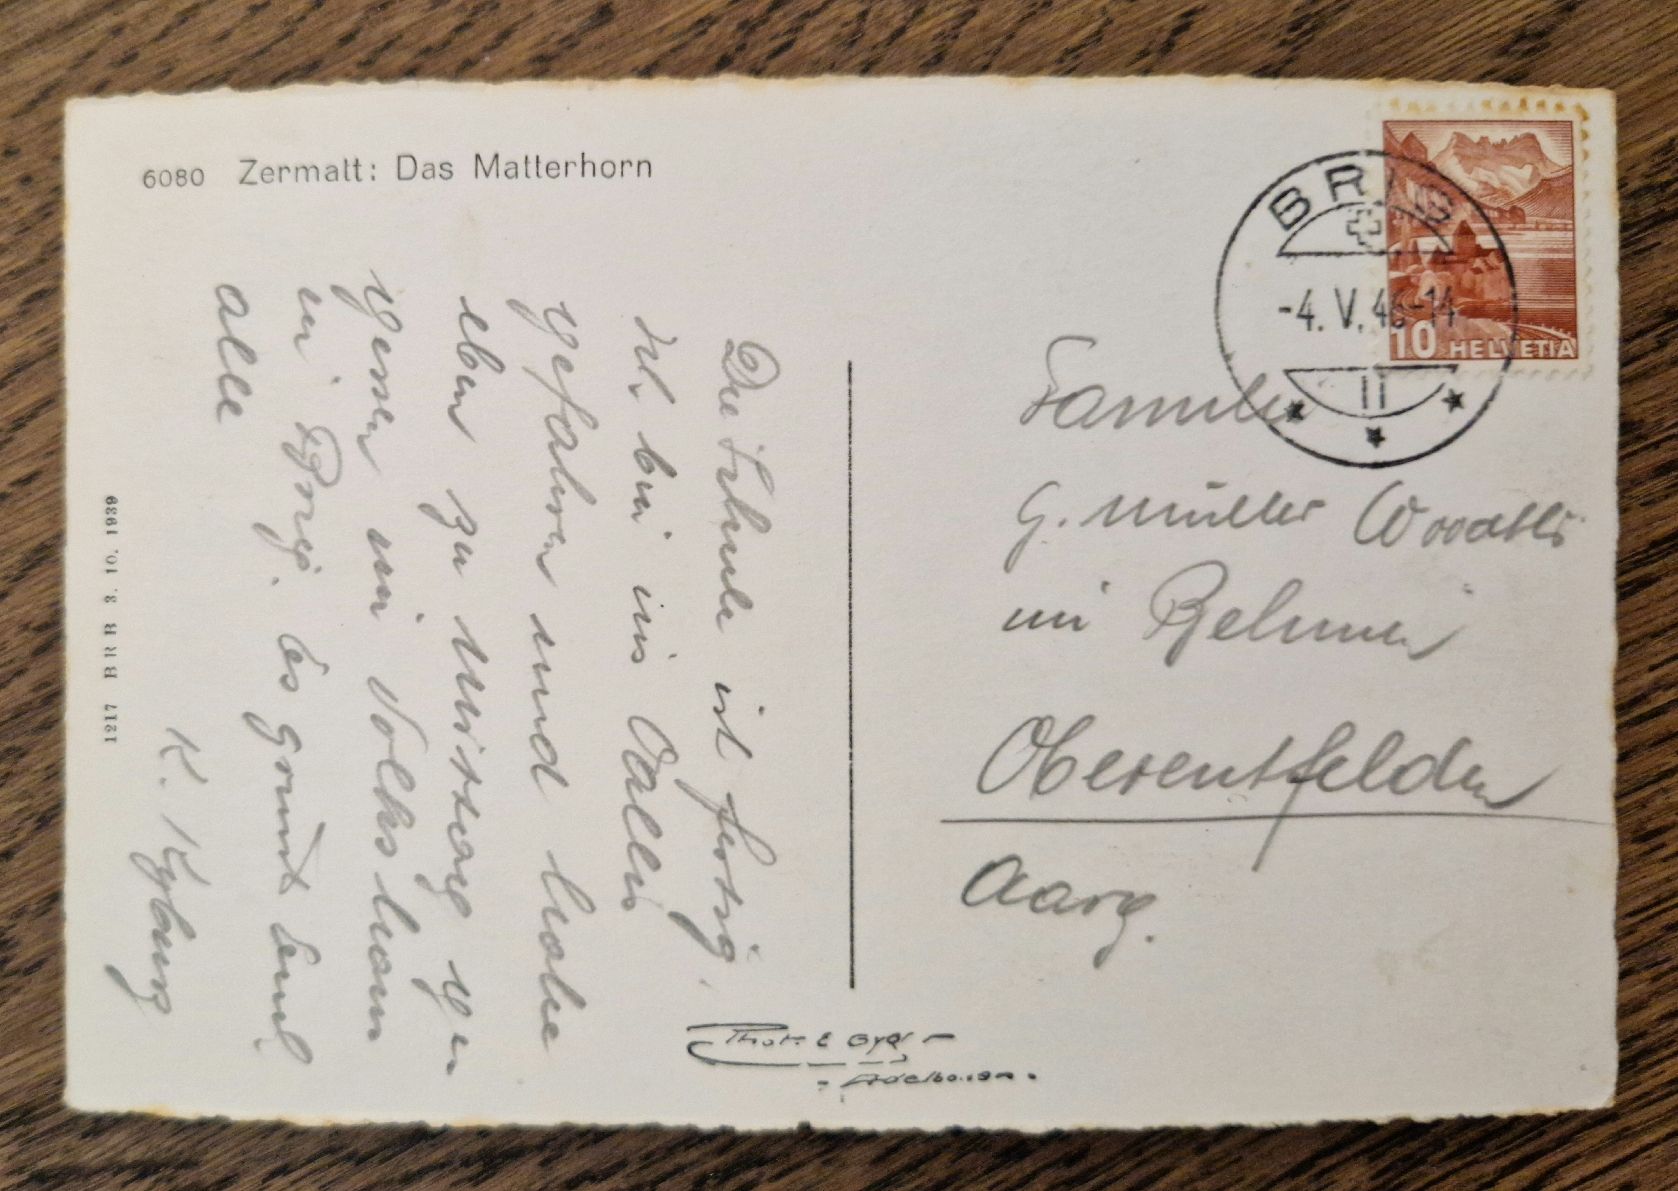 6080 Zermatt: Das Matterhorn
Die Schule ist fertig,
ich bin ins Wallis
gefahren und habe
eben zu Mittag ge
gessen im Volkshaus
in Brig. Es grüsst Euch
alle
K. Kyburz
1217 BRB 3. 10. 1939
Phot. E Gyger
Adelboden.
BRIG
-4. V. 46-14
11
10 HELVETIA
Familie
G. Müller
im
Oberentfelden
Aarg.